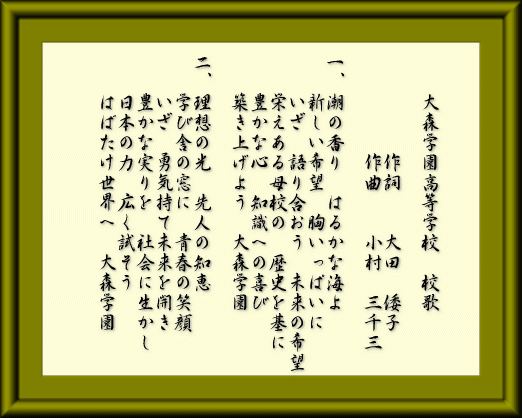 大森学園高等学校　校歌
作詞　大田　倭子
作曲　小村　三千三
一、
潮の香り　はるかな海よ
新しい希望　胸いっぱいに
いざ　語り合おう　未来の希望
栄えある母校の　歴史を基に
豊かな心　知識への喜び
築き上げよう　大森学園
二、
理想の光　先人の知恵
学び舎の窓に　青春の笑顔
いざ　勇気持て未来を開き
豊かな実りを　社会に生かし
日本の力　広く試そう
はばたけ世界へ　大森学園